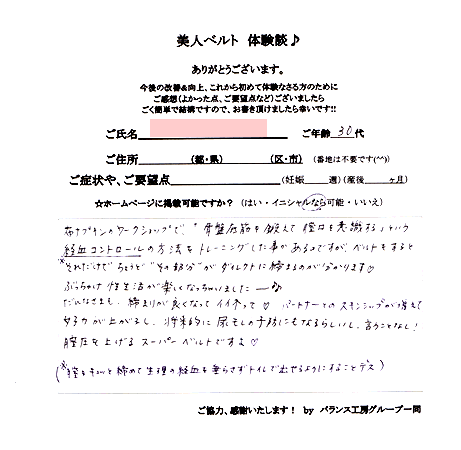 美人ベルト 体験談♪
ありがとうございます。
今後の改善&向上、これから初めて体験なさる方のために
ご感想(よかった点、ご要望点など)ございましたら
ごく簡単で結構ですので、お書き頂けましたら幸いです!!
ご氏名 ご年齢 30代
ご住所 (都・県) (区・市) (番地は不要です(^^))
ご症状や、ご要望点 (妊娠 週) (産後 ヶ月)
☆ホームページに掲載可能ですか? (はい・イニシャルなら可能・いいえ)
布ナプキンのワークショップで、"骨盤底筋を鍛えて膣口を意識する"という
経血コントロールの方法をトレーニングした事があるのですが、ベルトをすると
※それだけでちょうど"その部分"がダイレクトに締まるのがわかります♡
ぶっちゃけ性生活が楽しくなっちゃいました
だんなさまも、締まりが良くなってイイネって♡ パートナーとのスキンシップが増えて
女子力が上がるし、将来的に尿モレの予防にもなるらしいし、言うことなし!
膣圧を上げるスーパーベルトですよ♡
(※膣をキュッと締めて生理の経血を垂らさずトイレで出せるようにすることデス)
ご協力、感謝いたします! by バランス工房グループ一同